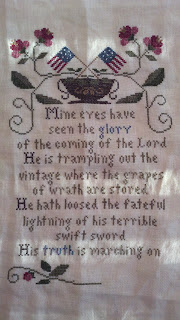 Mine eyes have
seen the glory
of the coming of the Lord
He is trampling out the
vintage where the grapes
of wrath are stored
He hath loosed the fateful
lightning of his terrible
swift sword
His truth is marching on